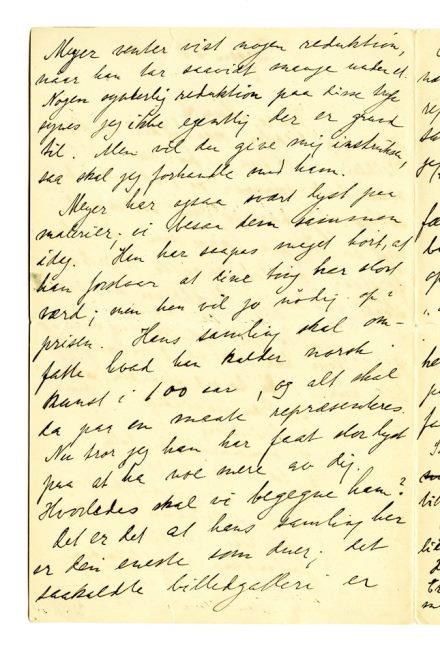 Meyer venter vist nogen reduktion,
naar han tar saavidt mange under et.
Nogen synderlig reduktion paa disse tryk
synes jeg ikke egentlig der er grund
til. Men vil du give mig instruktion,
saa skal jeg forhandle med ham.
Meyer har ogsaa svært lyst paa
malerier. vi besaa dem sammen
idag. Han har saapas meget bort, at
han forstaar at dine ting har stort
værd; men han vil jo nødig op i
prisen. Hans samling skal om-
fatte hvad han kalder norsk
kunst i 100 aar, og alt skal
da paa en maate repræsenteres.
Nu tror jeg han har faat stor lyst
paa at ha noe mere av dig.
Hvorledes skal vi begegne ham?
Det er det at hans samling her
er den eneste som duer; det
saakaldte billedgalleri er